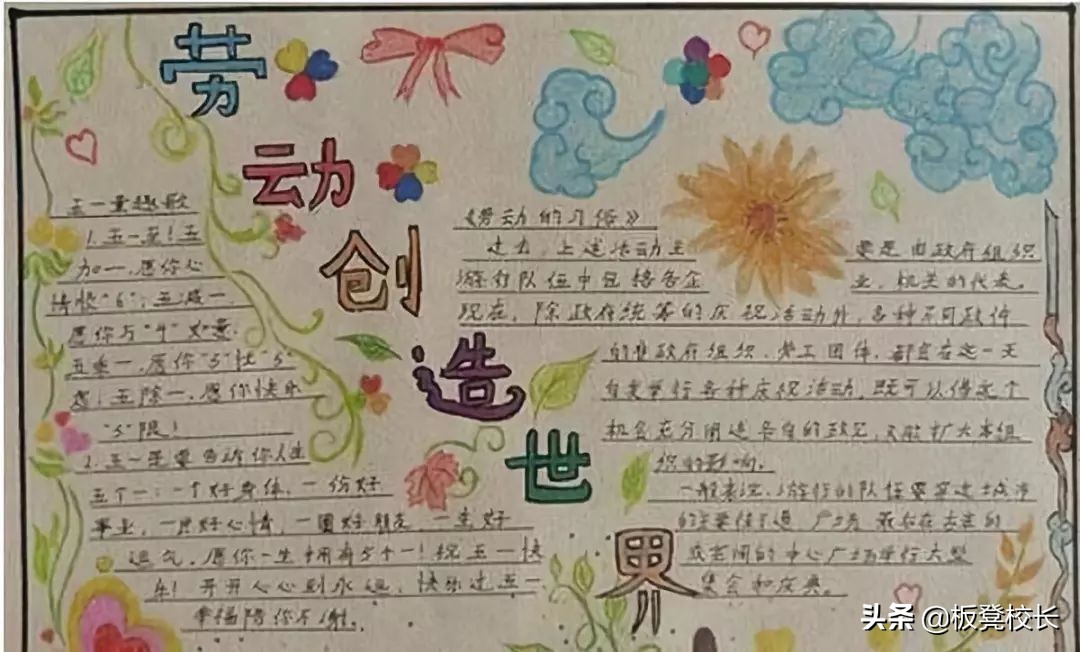 劳动创造世界
五一童趣歌
1.五一至!五
加一,愿你心
情愉"6";五减一,
愿你与"4"
五乘一,愿你"5"快"5"
五除一,愿你快乐
"5"限!
2.五一是要告诉你人生
五个一:一个好身体,一份好
事业,一片好心情,一圈好朋友,一生好
运气,愿你一生拥有5个一!祝五一快
乐!开开心心到永远,快乐过五一
幸福陪你不谢。
《劳动的习俗》
过去,上述活动主
要是由政府组织
游行队伍中包括各企
业,机关的代表。
现在,除政府统筹的庆祝活动外,各种不同政件
的非政府组织,劳工团体,都会在这一天
自发举行各种庆祝活动,既可以借这个
机会充分阐述各自的政见,又能扩大本组
织的影响。
一般来说,游行的队伍要穿过城市
的主要街道,广场,最后在去去的
或空闲的中心广场举行大型
集会和庆典。
头条 @板凳校长